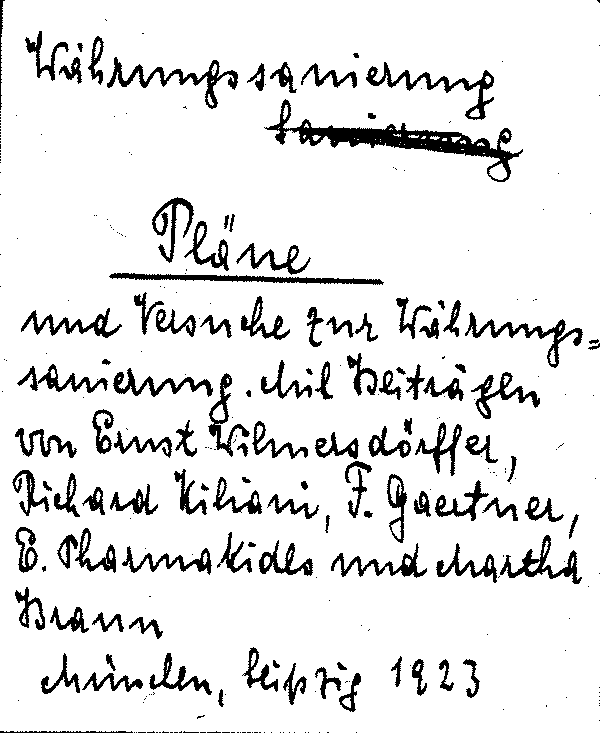 Währungssanierung
Sanierung
Pläne
und Versuche zur Währungs=
sanierung. Mit Beiträgen
von Ernst Wilmersdörffer,
Richard Kiliani, F. Gaertner,
E. Pharmakides und Martha
Braun
München, Leipzig 1923